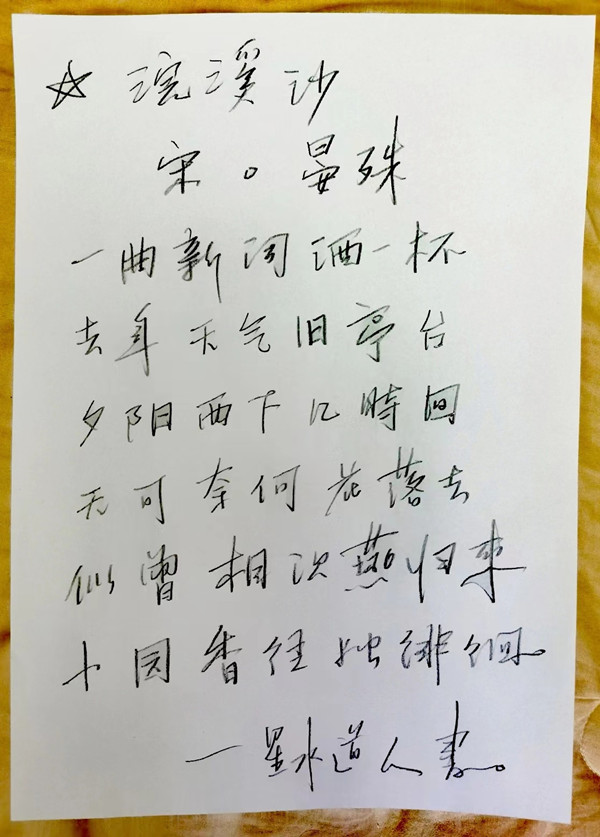 ☆ 浣溪沙
宋。晏殊
一曲新词酒一杯
去年天气旧亭台
夕阳西下几時回
无可奈何花落去
似曾相识燕归来
小园香径独徘徊。
一星水道人书。